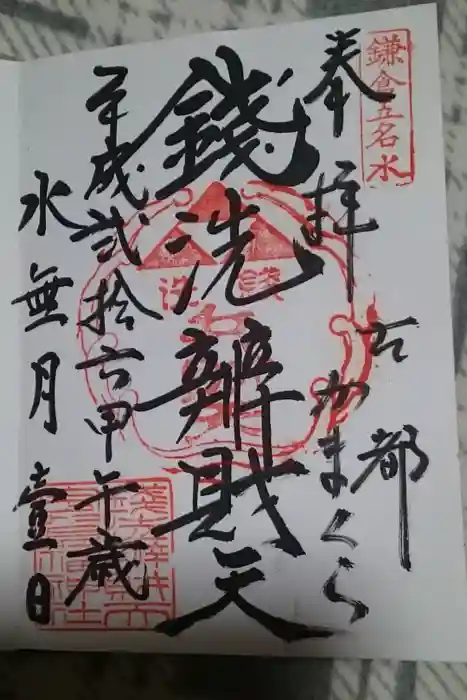 鎌倉五名水
奉拝
古都
かまくら
銭洗辨財天
平成弐拾六甲午歳
水無月壹日
銭洗